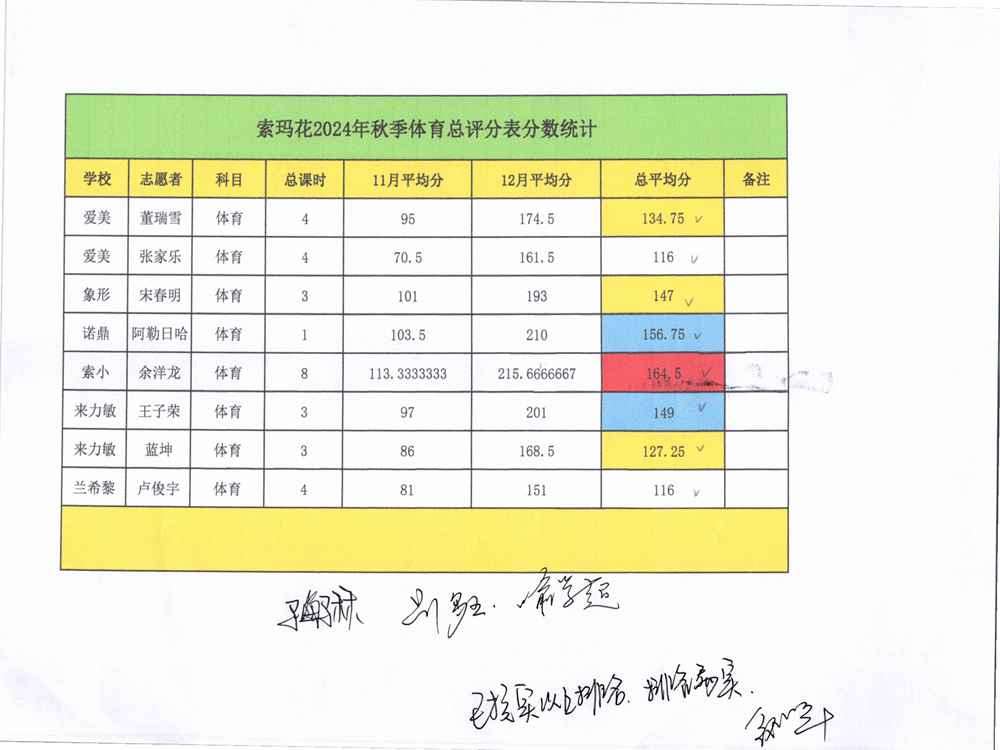 索玛花2024年秋季体育总评分表分数统计
学校 志愿者 科目 总课时 11月平均分 12月平均分 总平均分 备注
爱美 董瑞雪 体育 4 95 174.5 134.75 ✓
爱美 张家乐 体育 4 70.5 161.5 116 ✓
象形 宋春明 体育 3 101 193 147 ✓
诺鼎 阿勒日哈 体育 1 103.5 210 156.75 ✓
索小 余洋龙 体育 8 113.3333333 215.6666667 164.5 ✓
来力敏 王子荣 体育 3 97 201 149 ✓
来力敏 蓝坤 体育 3 86 168.5 127.25 ✓
兰希黎 卢俊宇 体育 4 81 151 116 ✓
已核实以上排名.排名属实.